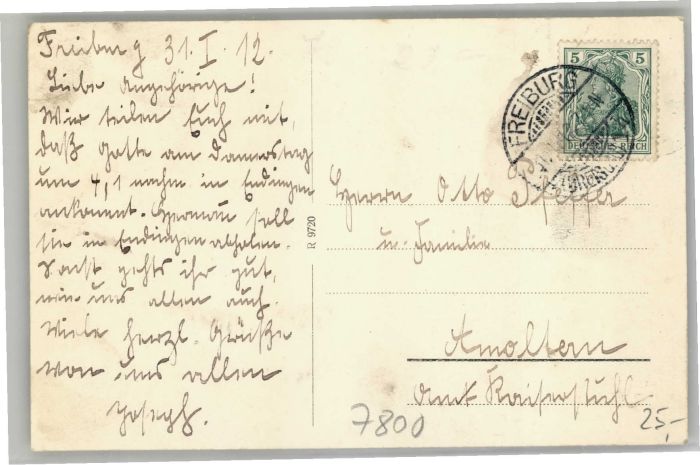 Freiburg 31.I.12.
Liebe Angehörige!
Wir teilen Euch mit,
daß Gotte am Donnerstag
um 4,1 nachm in Endingen
ankommt. Hermann soll
sie in Endingen abholen.
Sonst gehts ihr gut,
wie uns allen auch.
Viele herzl. Grüße
von uns allen
Joseph.
R 9720
5 5
DEUTSCHES REICH
FREIBURG
Herrn Otto
u. Familie
Amoltern
Amt Kaiserstuhl
7800
25,-